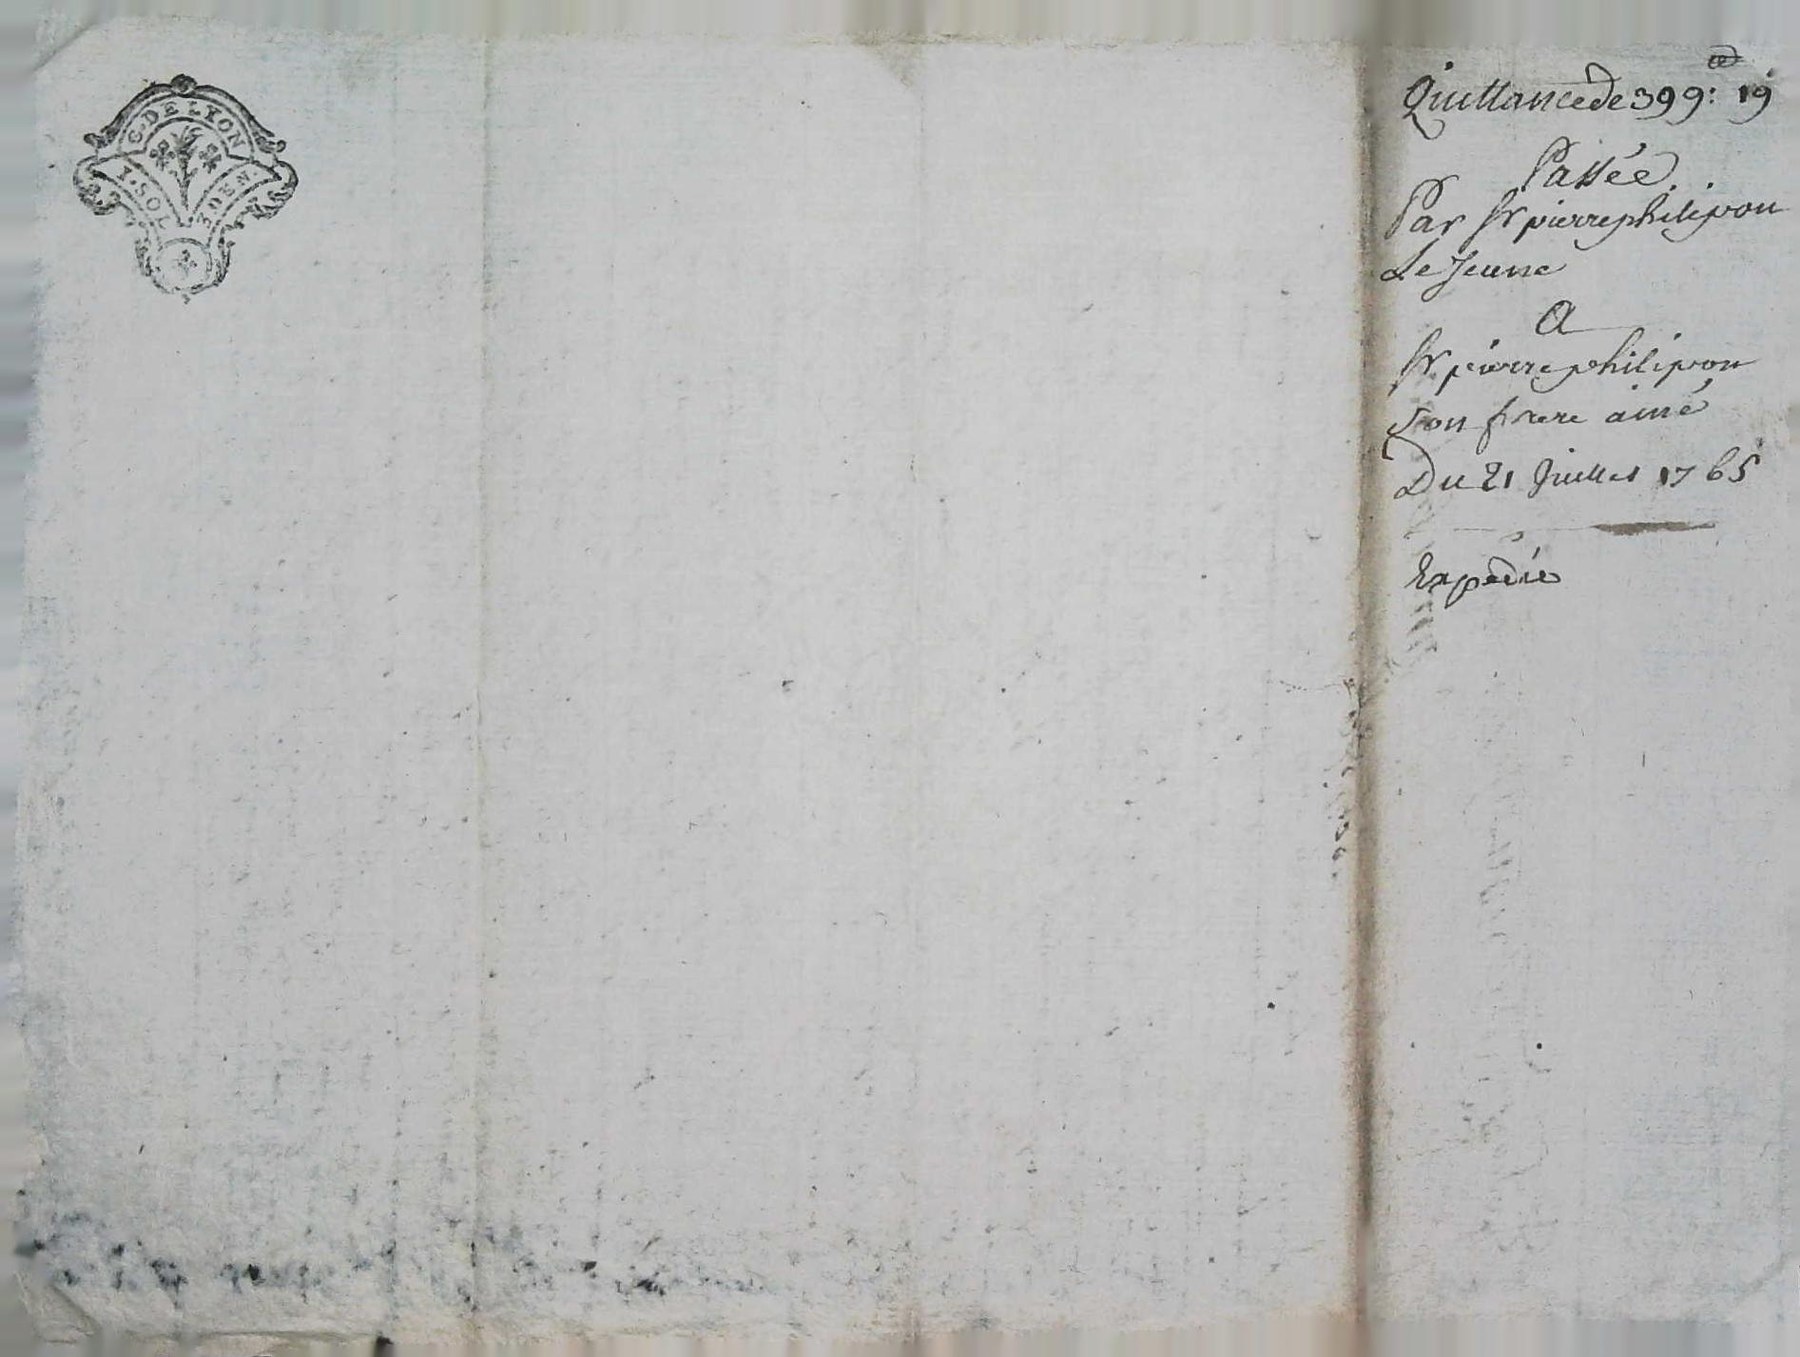 G. DE LYON
1. SOL 8 DEN.
Quittance de 399: 19
Passée
Par Sr pierre philipon
Le Jeune
A
Sr pierre philipon
Son frere ainé
Du 21 Juillet 1765
Expedié